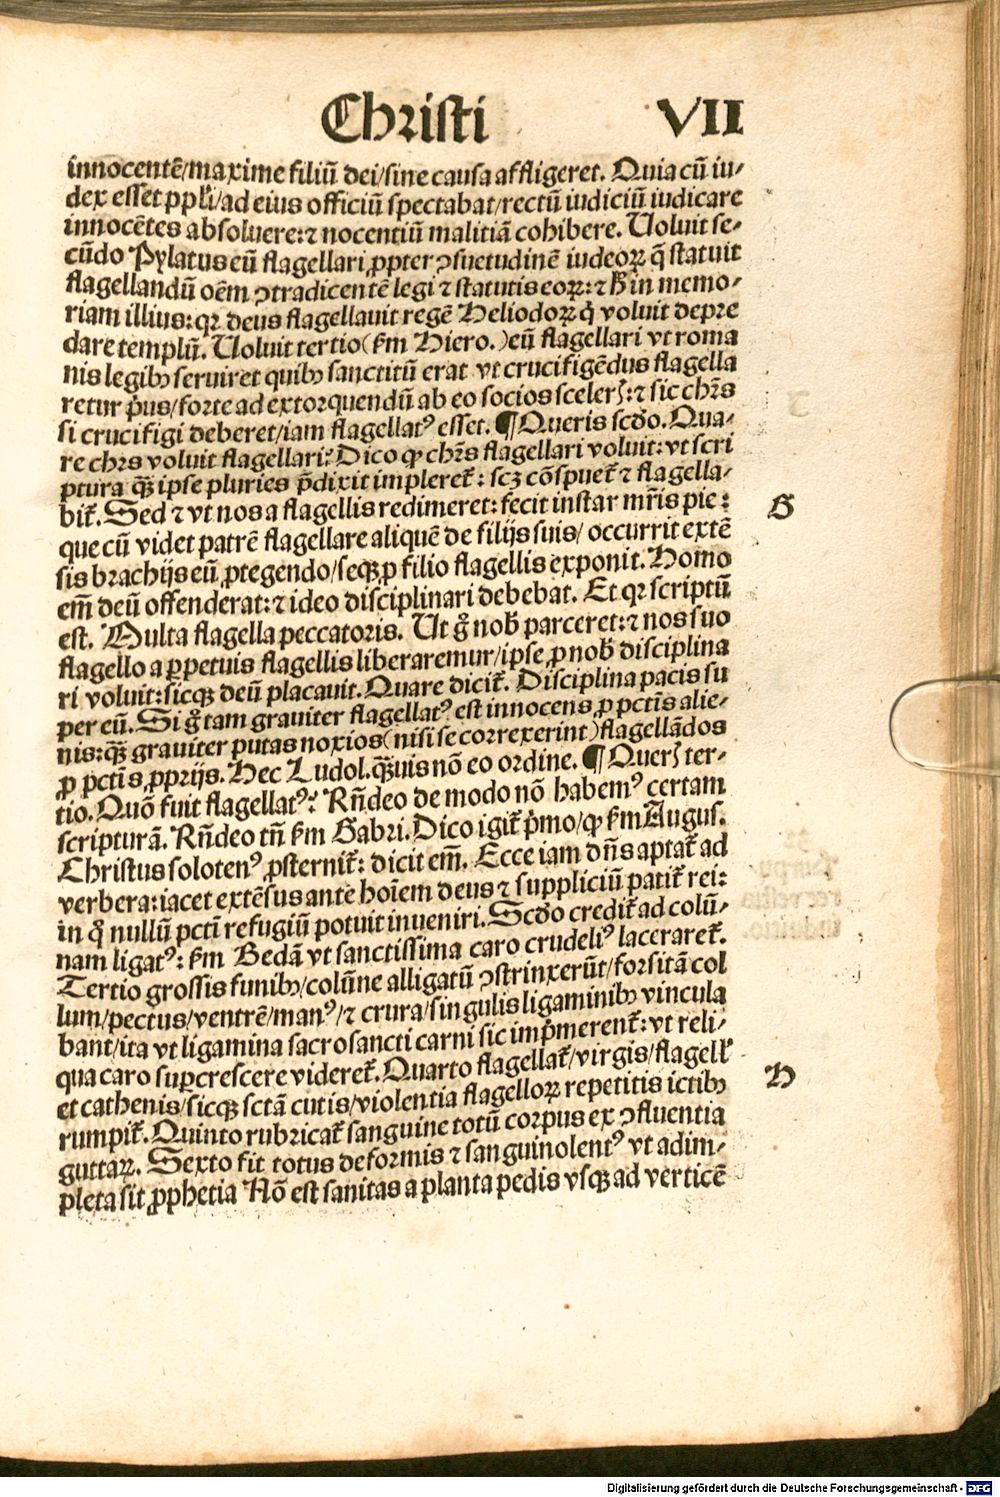 Christi VII
innocentē/maxime filiū dei/sine causa affligeret. Quia cū iu⸗
dex esset ppl'i/ad eius officiū spectabat/rectū iudiciū iudicare
innocētes absoluere:⁊ nocentiū malitiā cohibere. Uoluit se⸗
cūdo Pylatus eū flagellari ꝓpter ꝯsuetudinē iudeoꝝ q̄ statuit
flagellandū oēm ꝯtradicentē legi ⁊ statutis eoꝝ:⁊ h̄ in memo⸗
riam illius:qꝛ deus flagellauit regē Heliodoꝝ q̇ voluit depre
dare templū. Uoluit tertio(ẜm Hiero.)eū flagellari vt roma
nis legibꝰ seruiret quibꝰ sanctitū erat vt crucifigēdus flagella
retur pͥus/forte ad extorquendū ab eo socios sceleꝝ:⁊ sic chr̄s
si crucifigi deberet/iam flagellatꝰ esset. ¶Queris scd̄o.Qua⸗
re chr̄s voluit flagellari? Dico ꝙ chr̄s flagellari voluit:vt scri
ptura qꝫ ipse pluries p̄dixit impleret̄: scꝫ cōspuet̄ ⁊ flagella⸗
bit̄.Sed ⁊ vt nos a flagellis redimeret:fecit instar mr̄is pie:
que cū videt patrē flagellare aliquē de filijs suis/ occurrit extē
sis brachijs eū ꝓtegendo/seqꝫ ꝓ filio flagellis exponit. Homo
em̄ deū offenderat:⁊ ideo disciplinari debebat. Et qꝛ scriptū
est. Multa flagella peccatoris. Ut g̊ nob̄ parceret:⁊ nos suo
flagello a ꝑpetuis flagellis liberaremur/ipse ꝓ nob̄ disciplina
ri voluit:sicqꝫ deū placauit.Quare dicit̄. Disciplina pacis su
per eū.Si g̊ tam grauiter flagellatꝰ est innocens ꝓ pctīs alie⸗
nis:qꝫ grauiter putas noxios(nisi se correxerint)flagellādos
ꝓ pctīs ꝓprijs. Hec Ludol.qꝫuis nō eo ordine. ¶Querꝭ ter⸗
tio.Quō fuit flagellatꝰ? Rn̄deo de modo nō habemꝰ certam
scripturā. Rn̄deo tn̄ ẜm Gabri.Dico igit̄ pͥmo/ꝙ ẜm Augus.
Christus solotenꝰ ꝓsternit̄: dicit em̄. Ecce iam dn̄s aptat̄ ad
verbera:iacet extēsus ante hoīem deus ⁊ suppliciū patit̄ rei:
in q̊ nullū pctī refugiū potuit inueniri.Scd̄o credit̄ ad colū⸗
nam ligatꝰ: ẜm Bedā vt sanctissima caro crudeliꝰ laceraret̄.
Tertio grossis funibꝰ/colūne alligatū ꝯstrinxerūt/forsitā col
lum/pectus/ventrē/manꝰ/⁊ crura/singulis ligaminibꝰ vincula
bant/ita vt ligamina sacrosancti carni sic impͥmerent̄:vt reli⸗
qua caro suꝑcrescere videret̄.Quarto flagellat̄/virgis/flagell'
et cathenis/sicqꝫ sctā cutis/violentia flagelloꝝ repetitis ictibꝰ
rumpit̄.Quinto rubricat̄ sanguine totū corpus ex ꝯfluentia
guttaꝝ. Sexto fit totus deformis ⁊ sanguinolentꝰ vt adim⸗
pleta sit ꝓphetia Nō est sanitas a planta pedis vsqꝫ ad verticē
G
H
Digitalisierung gefördert durch die Deutsche Forschungsgemeinschaft - DFG